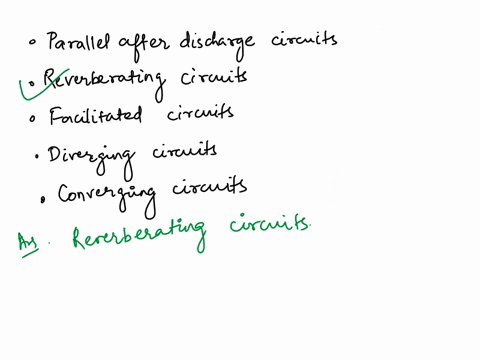 • Parallel after discharge circuits
• Reverberating circuits
• Facilitated circuits
• Diverging circuits
• Converging circuits
Ans. Reverberating circuits.